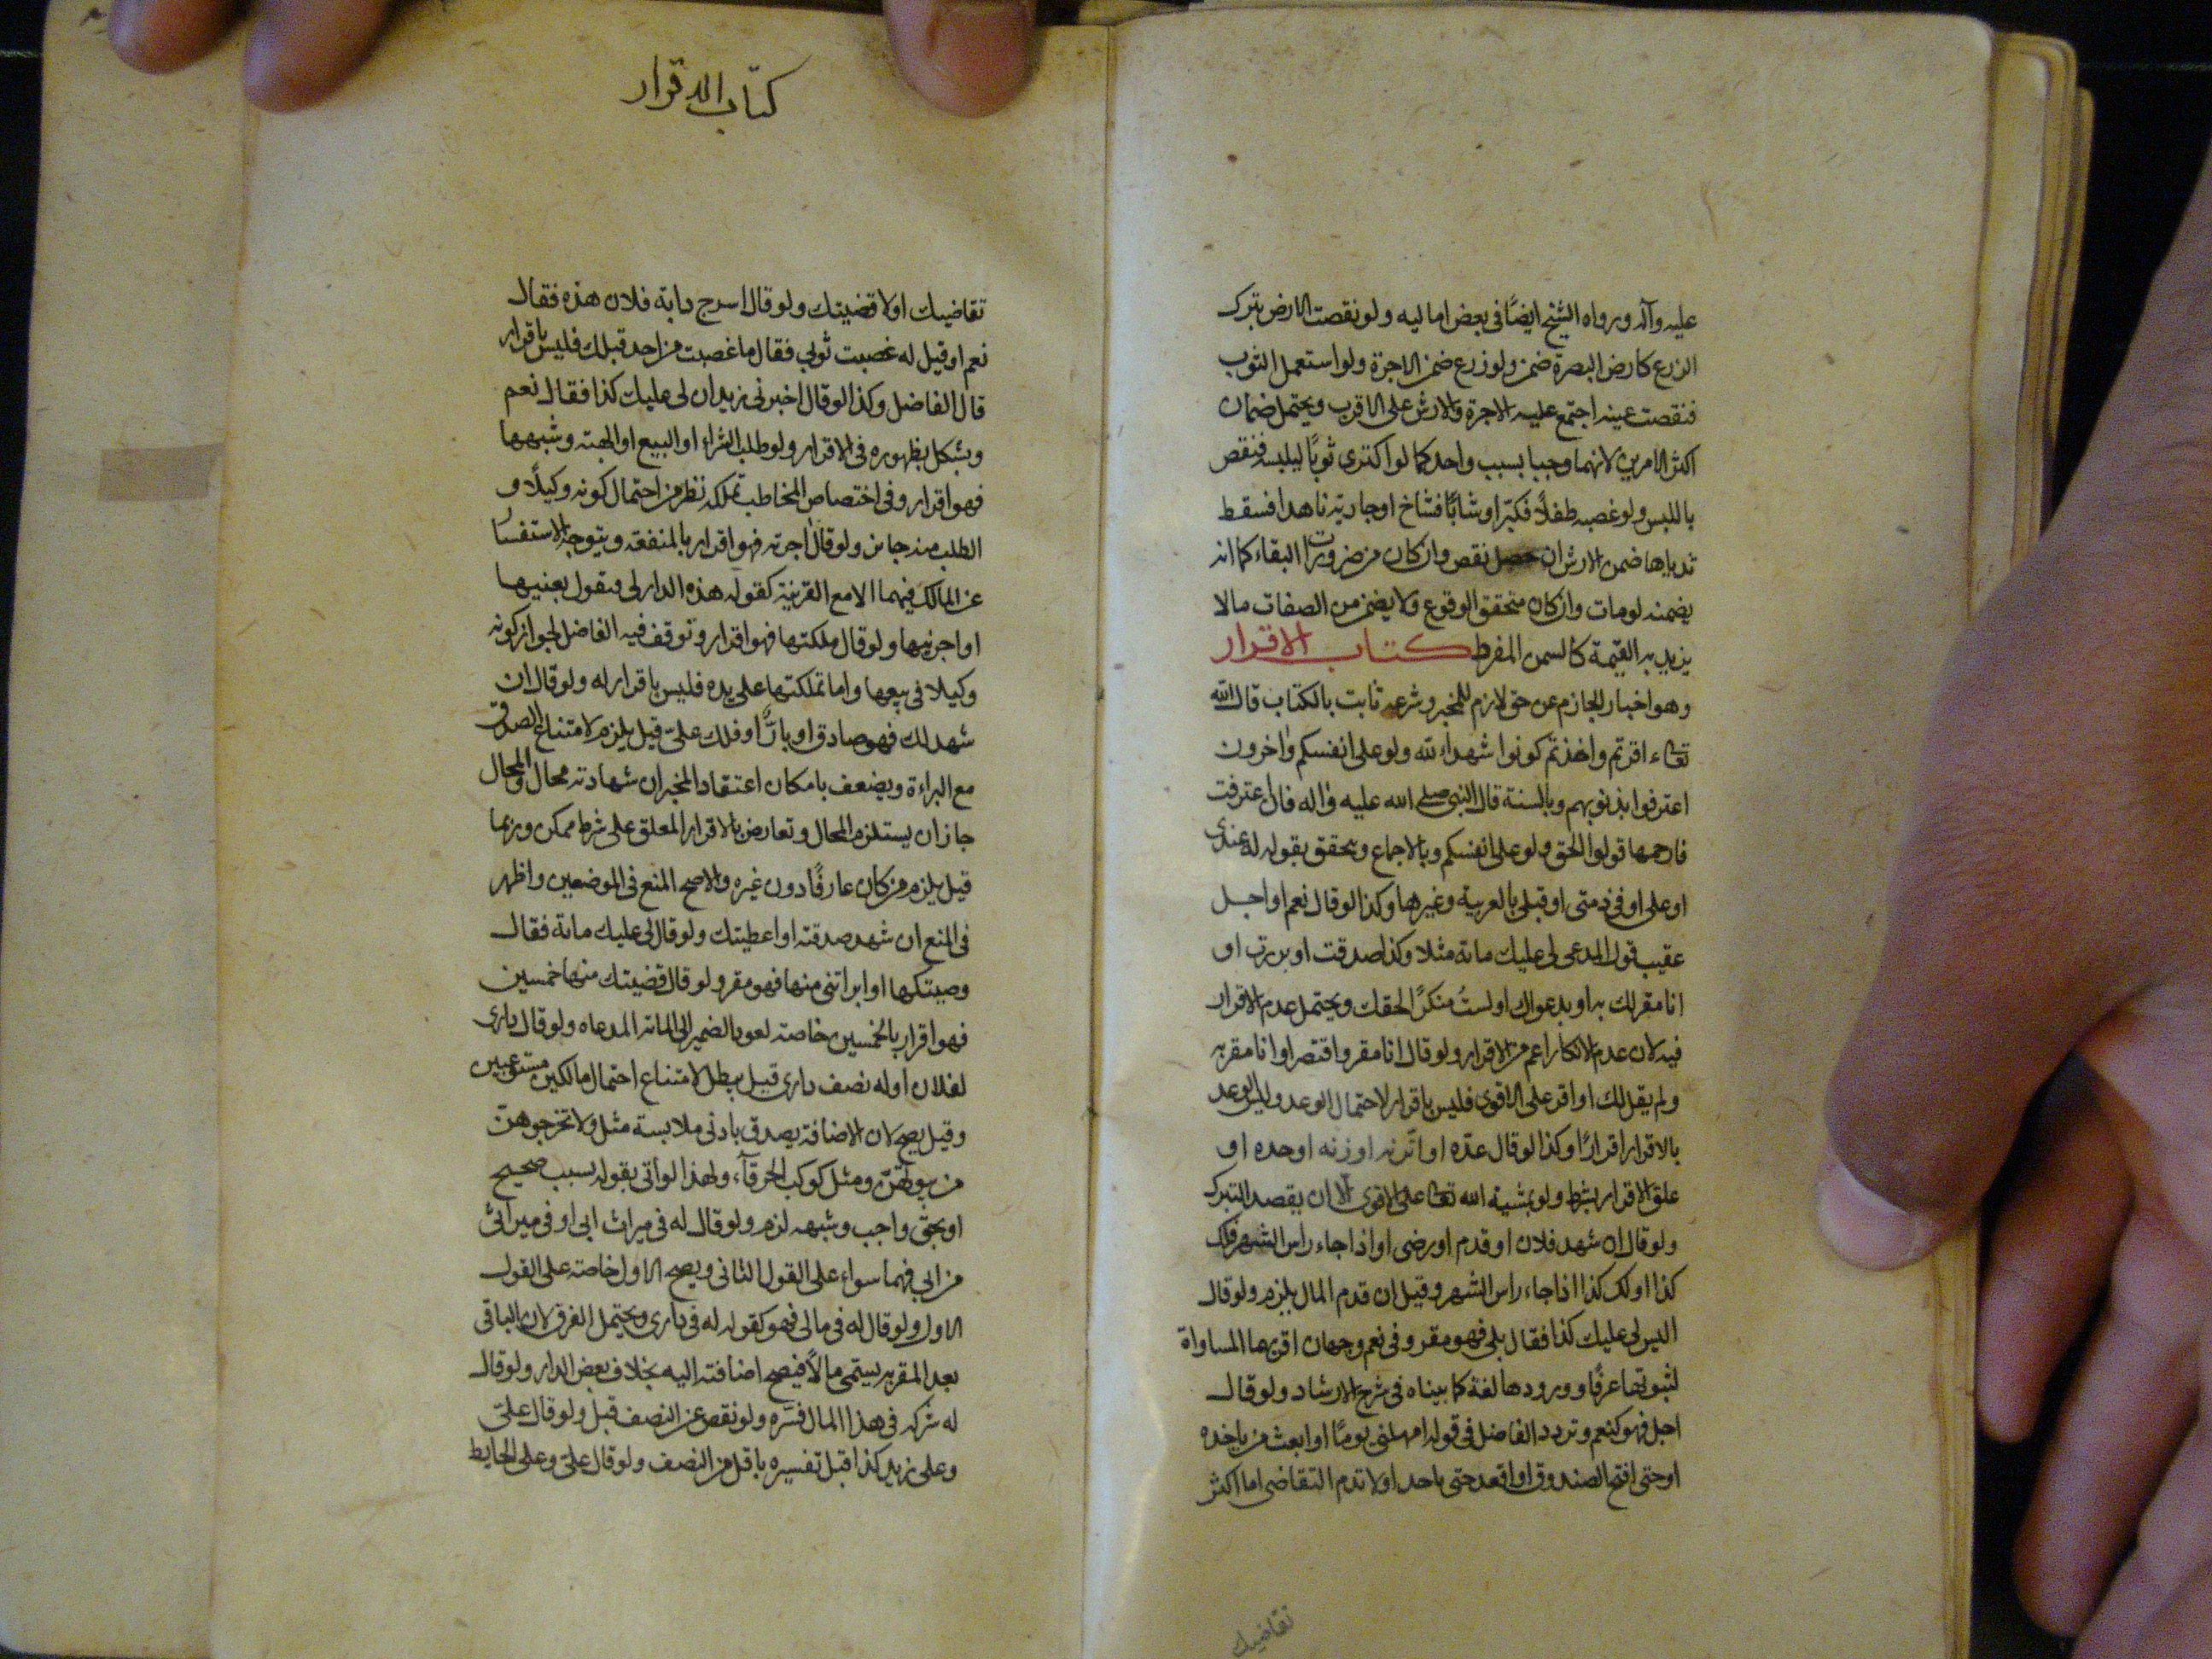 عليه وآله ورواه الشيخ ايضًا فى بعض اماليه ولو نقصت الارض بترك
الزرع كارض البصرة ضمن ولو زرع ضمن الاجرة ولو استعمل الثوب
فنقصت عينه اجتمع عليه الاجرة والارش على الاقرب ويحتمل ضمان
اكثر الامرين لانهما وجبا بسبب واحد كما لو اكترى ثوبًا ليلبسه فنقص
باللبس ولو غصبه طفلًا فكبر او شابًا فشاخ او جارية ناهدا فسقط
ثدياها ضمن الارش ان حصل نقص وان كان من ضرورات البقاء كما انه
يضمنه لو مات وان كان متحقق الوقوع ولا يضمن من الصفات مالا
يزيد به القيمة كالسمن المفرط كتاب الاقرار
وهو اخبار الجازم عن حق لازم للمخبر وشرعه ثابت بالكتاب قال الله
تعالى ءاقررتم واخذتم كونوا شهداء لله ولو على انفسكم واخرون
اعترفوا بذنوبهم وبالسنة قال النبى صلى الله عليه واله فان اعترفت
فارجمها قولوا الحق ولو على انفسكم وبالاجماع ويحقق بقوله له عندى
او على او فى ذمتى او قبلى بالعربية وغيرها وكذا لو قال نعم او اجل
عقيب قول المدعى لى عليك مائة مثلا وكذا صدقت او بررت او
انا مقر لك به او بدعواك او لستُ منكرًا لحقك ويحتمل عدم الاقرار
فيه لان عدم الانكار اعم من الاقرار ولو قال انا مقر واقتصر او انا مقر به
ولم يقل لك او اقر على الاقوى فليس باقرار لاحتمال الوعد وليس الوعد
بالاقرار اقرارًا وكذا لو قال عدّه او اتّزنه او زنه او خده او
علق الاقرار بشرط ولو بمشية الله تعالى على الاقوى الا ان يقصد التبرك
ولو قال ان شهد فلان او قدم او رضى او اذا جاء راس الشهر فلك
كذا او لك كذا اذا جاء راس الشهر وقيل ان قدم المال يلزم ولو قال
اليس لى عليك كذا فقال بلى فهو مقر وفى نعم وجهان اقربهما المساواة
لثبوتها عرفًا وورودها لغة كما بيناه فى شرح الارشاد ولو قال
اجل فهو كنعم وتردد الفاضل فى قوله امهلنى يومًا او ابعث من ياخذه
او حتى افتح الصندوق او اقعد حتى تاخذ او لا تدم التقاضى اما اكثر
تقاضيك
كتاب الاقرار
تقاضيك او لاقضيتك ولو قال اسرج دابة فلان هذه فقال
نعم او قيل له غصبت ثوبى فقال ما غصبت من احد قبلك فليس باقرار
قال الفاضل وكذا لو قال اخبرنى زيد ان لى عليك كذا فقال نعم
ويشكل بظهوره فى الاقرار ولو طلب الشراء او البيع او الهبة وشبهها
فهو اقرار وفى اختصاص المخاطب تملكه نظر من احتمال كونه وكيلًا و
الطلب منه جائز ولو قال اجرته فهو اقرار بالمنفعة ويتوجه الاستفسار
عن المالك فيهما الا مع القرينة كقوله هذه الدار لى فيقول بعنيها
او اجرنيها ولو قال ملكتها فهو اقرار وتوقف فيه الفاضل لجواز كونه
وكيلا فى بيعها واما تملكتها على يده فليس باقرار له ولو قال ان
شهد لك فهو صادق او بارّ او فلك علىّ قيل يلزم لامتناع الصدق
مع البراءة ويضعف بامكان اعتقاد المخبر ان شهادته محال والمحال
جاز ان يستلزم المحال وتعارض بالاقرار المعلق على شرط ممكن وربما
قيل يلزم من كان عارفًا دون غيره والاصح المنع فى الموضعين واظهر
فى المنع ان شهد صدقته او اعطيتك ولو قال لى عليك مائة فقال
وصيتكها او ابراتنى منها فهو مقر ولو قال قضيتك منها خمسين
فهو اقرار بالخمسين خاصة لعود الضمير الى المائة المدعاه ولو قال دارى
لفلان او له نصف دارى قيل يبطل لامتناع احتمال مالكين مستوعبين
وقيل يصح لان الاضافة يصدق بادنى ملابسة مثل ولا تخرجوهنّ
من بيوتهنّ ومثل كوكب الخرقآء ولهذا لو اتى بقوله بسبب صحيح
او بحق واجب وشبهه لزم ولو قال له فى ميراث ابى او فى ميراثى
من ابى فهما سواء على القول الثانى ويصح الاول خاصة على القول
الاول ولو قال له فى مالى فهو كقوله له فى دارى ويحتمل الفرق لان الباقى
بعد المقر به يسمّى مالًا فيصح اضافته اليه بخلاف بعض الدار ولو قال
له شركه فى هذا المال فسّره ولو نقص عن النصف قبل ولو قال علىّ
وعلى زيد كذا قبل تفسيره باقل من النصف ولو قال علىّ وعلى الحايط